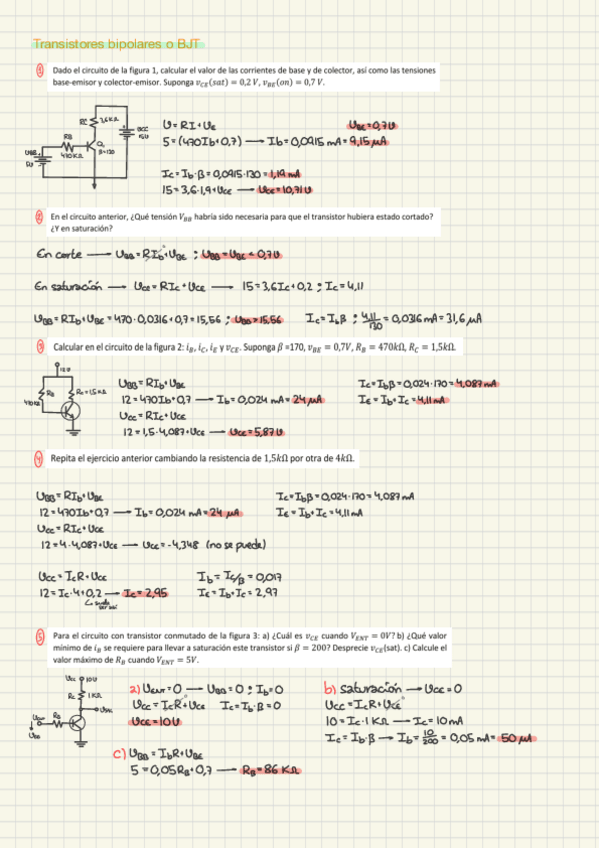 Transistores bipolares o BJT
1 Dado el circuito de la figura 1, calcular el valor de las corrientes de base y de colector, así como las tensiones
base-emisor y colector-emisor. Suponga v_CE(sat) = 0,2 V, v_BE(on) = 0,7 V.
RC 3,6KΩ
VCC
15V
RB
470KΩ
Q1
β=130
VBB
5V
V=RI+Ve
VBE=0,7V
5=(470Ib+0,7) → Ib=0,0915mA=9,15µA
Ic=Ib·β=0,0915·130=1,19mA
15=3,6·1,9+VCE → VCE=10,71V
2 En el circuito anterior, ¿Qué tensión V_BB habría sido necesaria para que el transistor hubiera estado cortado?
¿Y en saturación?
En corte → VBB=RIb+VBE ; VBB=VBE<0,7V
En saturación → VCC=RIC+VCE → 15=3,6Ic+0,2 ; Ic=4,11
VBB=RIb+VBE=470·0,0316+0,7=15,56 ; VBB>15,56 Ic=Ibβ ; 4,11/130=0,0316mA=31,6µA
3 Calcular en el circuito de la figura 2: i_B, i_C, i_E y v_CE. Suponga β =170, v_BE = 0,7V, R_B = 470kΩ, R_C = 1,5kΩ.
12V
RB
470KΩ
Rc=1,5KΩ
VBB=RIb+VBE
Ic=Ibβ=0,024·170=4,087mA
12=470Ib+0,7 → Ib=0,024mA=24µA
IE=Ib+Ic=4,11mA
VCC=RIC+VCE
12=1,5·4,087+VCE → VCE=5,87V
4 Repita el ejercicio anterior cambiando la resistencia de 1,5kΩ por otra de 4kΩ.
VBB=RIb+VBE
Ic=Ibβ=0,024·170=4,087mA
12=470Ib+0,7 → Ib=0,024mA=24µA
IE=Ib+Ic=4,11mA
VCC=RIC+VCE
12=4·4,087+VCE → VCE=-4,348 (no se puede)
VCC=ICR+VCE
Ib=Ic/β=0,017
12=Ic·4+0,2 → Ic=2,95
IE=Ib+Ic=2,97
↳ suele ser así
5 Para el circuito con transistor conmutado de la figura 3: a) ¿Cuál es v_CE cuando V_ENT = 0V? b) ¿Qué valor
mínimo de i_B se requiere para llevar a saturación este transistor si β = 200? Desprecie v_CE(sat). c) Calcule el
valor máximo de R_B cuando V_ENT = 5V.
VCC 10V
RC 1KΩ
RB
VBB
a) VENT=0 → VBB=0 ; Ib=0
VCC=ICR+VCE Ic=Ib·β=0
VCE=10V
b) saturación → VCE=0
VCC=ICR+VCE
10=Ic·1KΩ → Ic=10mA
Ic=Ib·β → Ib=10/200=0,05mA=50µA
c) VBB=IbR+VBE
5=0,05RB+0,7 → RB=86KΩ